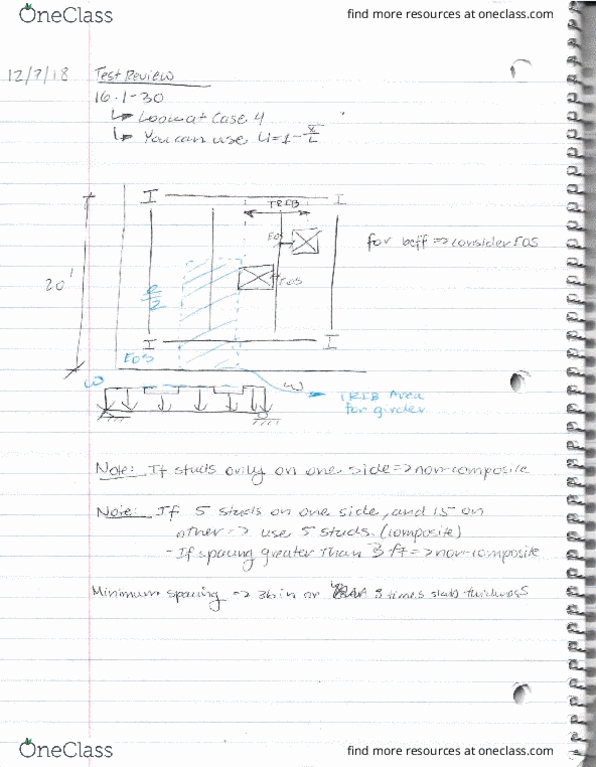 OneClass
find more resources at oneclass.com
12/7/18 Test Review
16.1-30
↳ Look at Case 4
↳ You can use U=1-x̄/L
I I
TRIB
EOS
for beff => consider EOS
EOS
20'
L/2
I I
EOS
w w
TRIB Area
for girder
Note: If studs only on one side => non-composite
Note: If 5 studs on one side, and 15 on
other -> use 5 studs. (composite)
- If spacing greater than 3 ft => non-composite
Minimum spacing -> 36in or 8 times slab thickness
OneClass
find more resources at oneclass.com